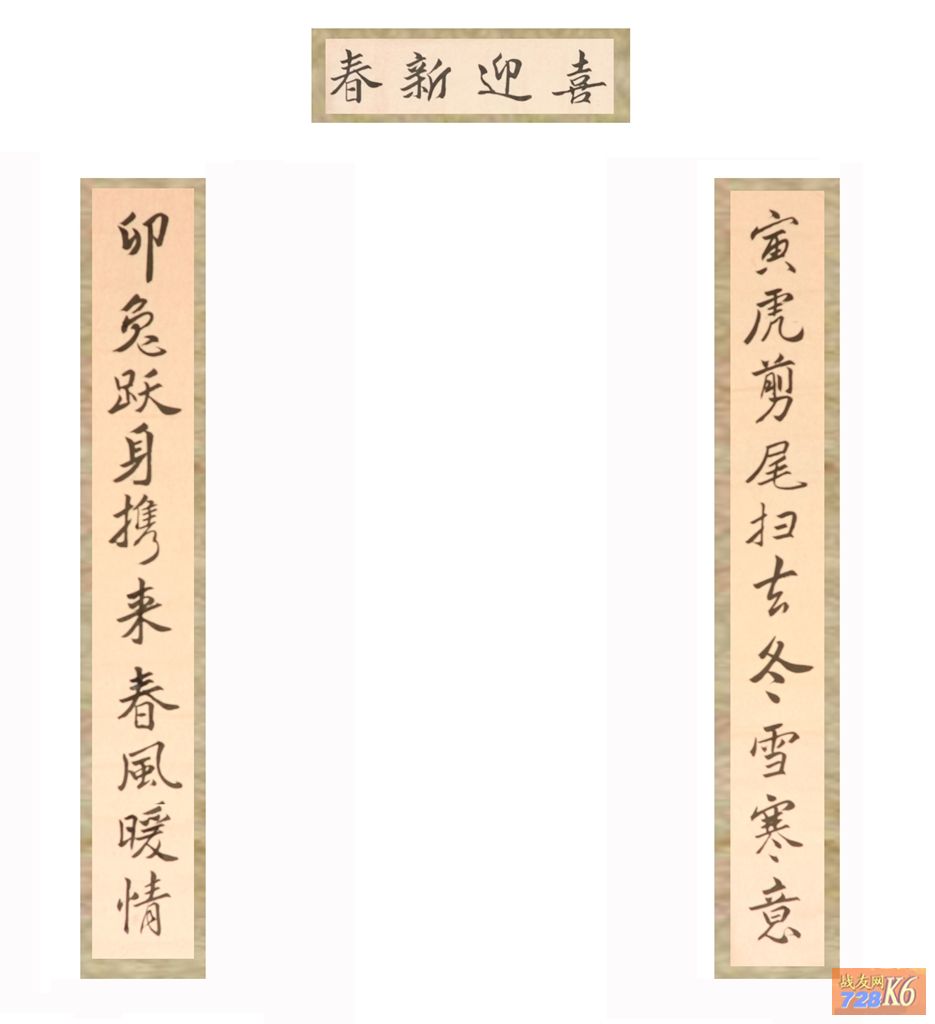 喜迎新春
寅虎剪尾扫去冬雪寒意
卯兔跃身携来春風暖情
战友网
728K6